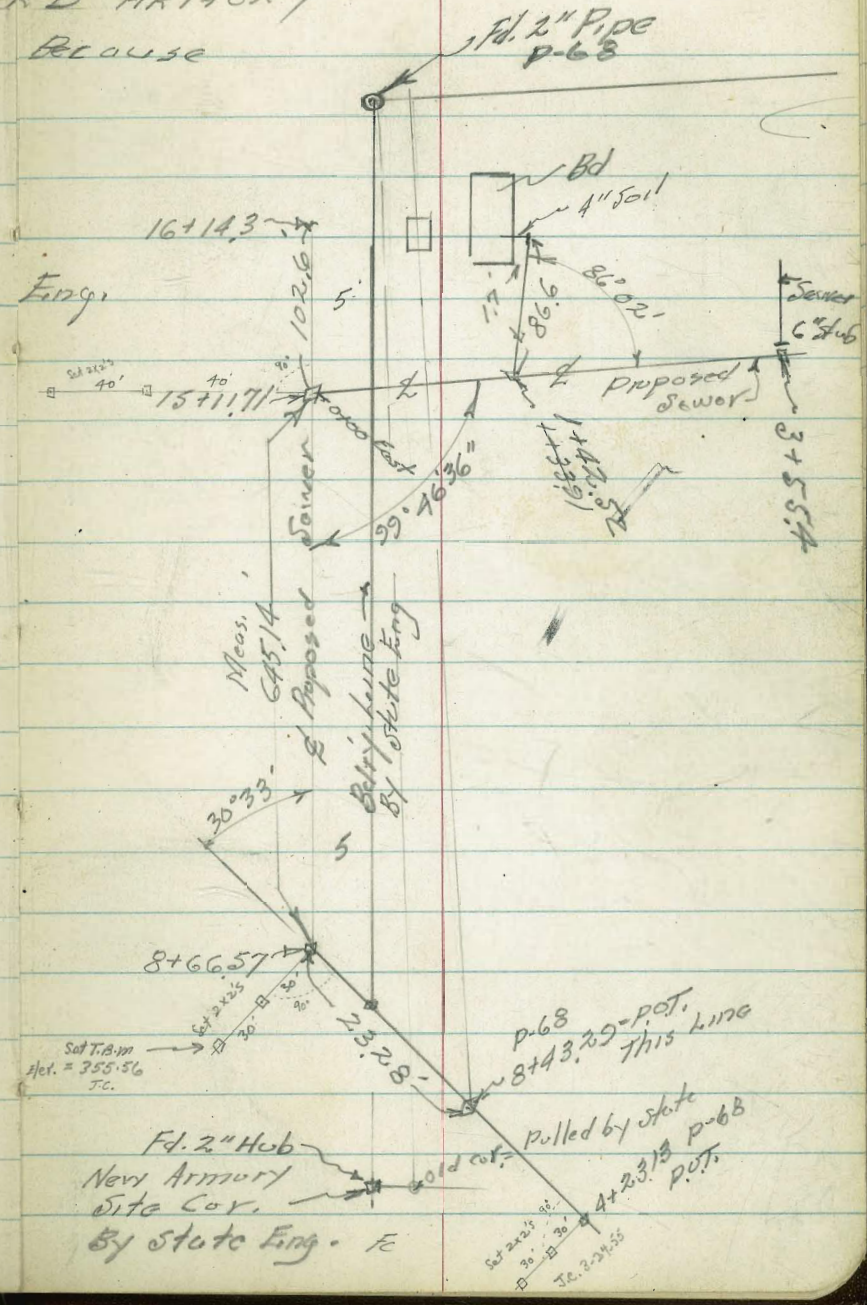 Because
Fd. 2" Pipe
P-68
Bd
4" Soil
16+14.3
102.6
5'
7.7'
86.6
86°02'
Eng.
Sewer
6" Stub
Set 2x2's
40'
40'
90°
15+11.71
℄
℄
Proposed
Sewer
0+00
1+33.9
1+42.52
3+55.4
99°46'36"
℄ Proposed Sewer
Meas.
645.14
Bdry Line
By State Eng
30°33'
5
8+66.57
Set 2x2's
30'
30'
90°
23.28'
Set T.B.M
Elev. = 355.56
J.C.
P-68
8+43.29=P.O.T.
This Line
Fd. 2" Hub
New Armory
Site Cor.
By State Eng. Fc
Old cor. = Pulled by State
4+23.13 P-68
P.O.T.
Set 2x2's 90°
30'
30'
J.C. 3-24-55